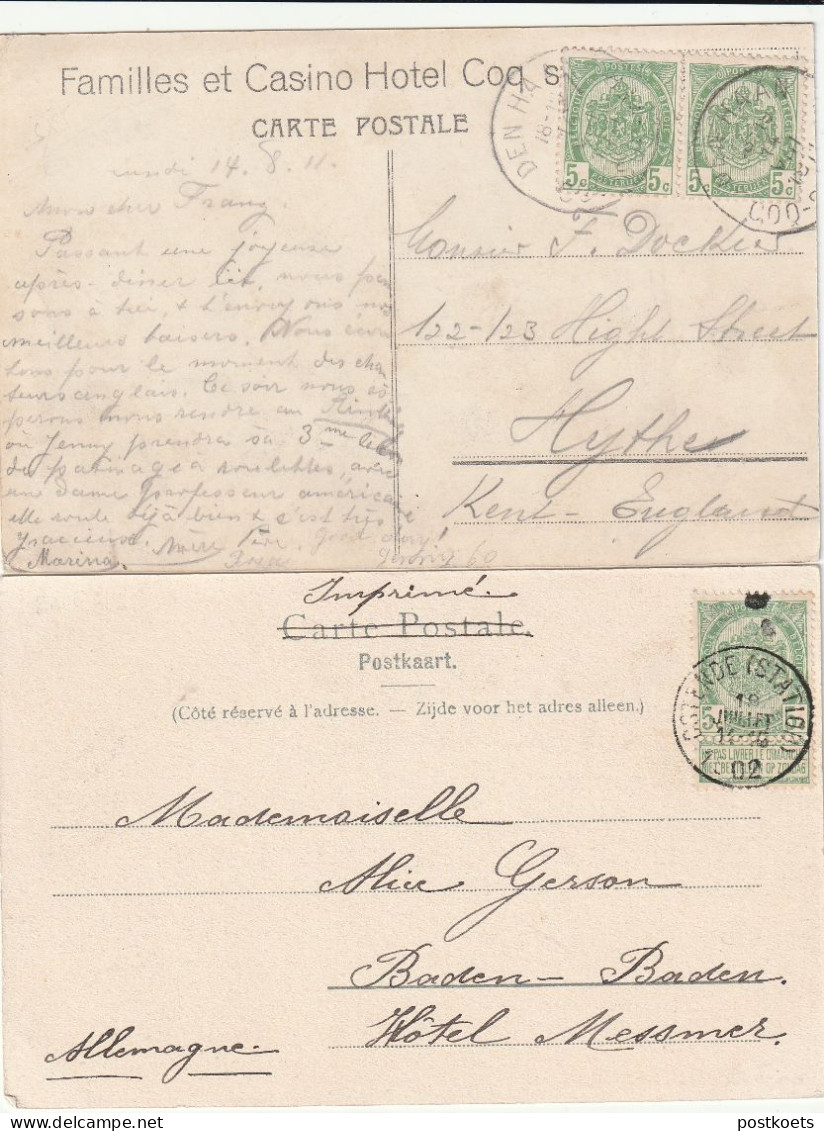 Familles et Casino Hotel Coq s
CARTE POSTALE
lundi 14.8.11.
Mon cher Franz.
Passant une joyeuse
après-diner ici, nous pen
sons à toi, & t'envoyons nos
meilleurs baisers. Nous écou
tons pour le moment des chan
teurs anglais. Ce soir nous es
pérons nous rendre au Rink
où Jenny prendra sa 3me leçon
de patinage à roulettes, avec
un dame professeur américain
elle roule déjà bien & c'est très
gracieux. Mère Père Good
Marina.
DEN HA
5c 5c
5c 5c
DEN HAAN
COQ-S
Monsier F. Docker
122-123 Hight Street
Hythe
Kent-England
Imprimé.
Carte Postale.
Postkaart.
(Côté réservé à l'adresse. — Zijde voor het adres alleen.)
OSTENDE (STATION)
18
JUILLET
02
NE PAS LIVRER LE DIMANCHE
NIET BESTELLEN OP ZONDAG
Mademoiselle
Alice Gerson
Baden-Baden.
Hôtel Messmer.
Allemagne.
postkoets